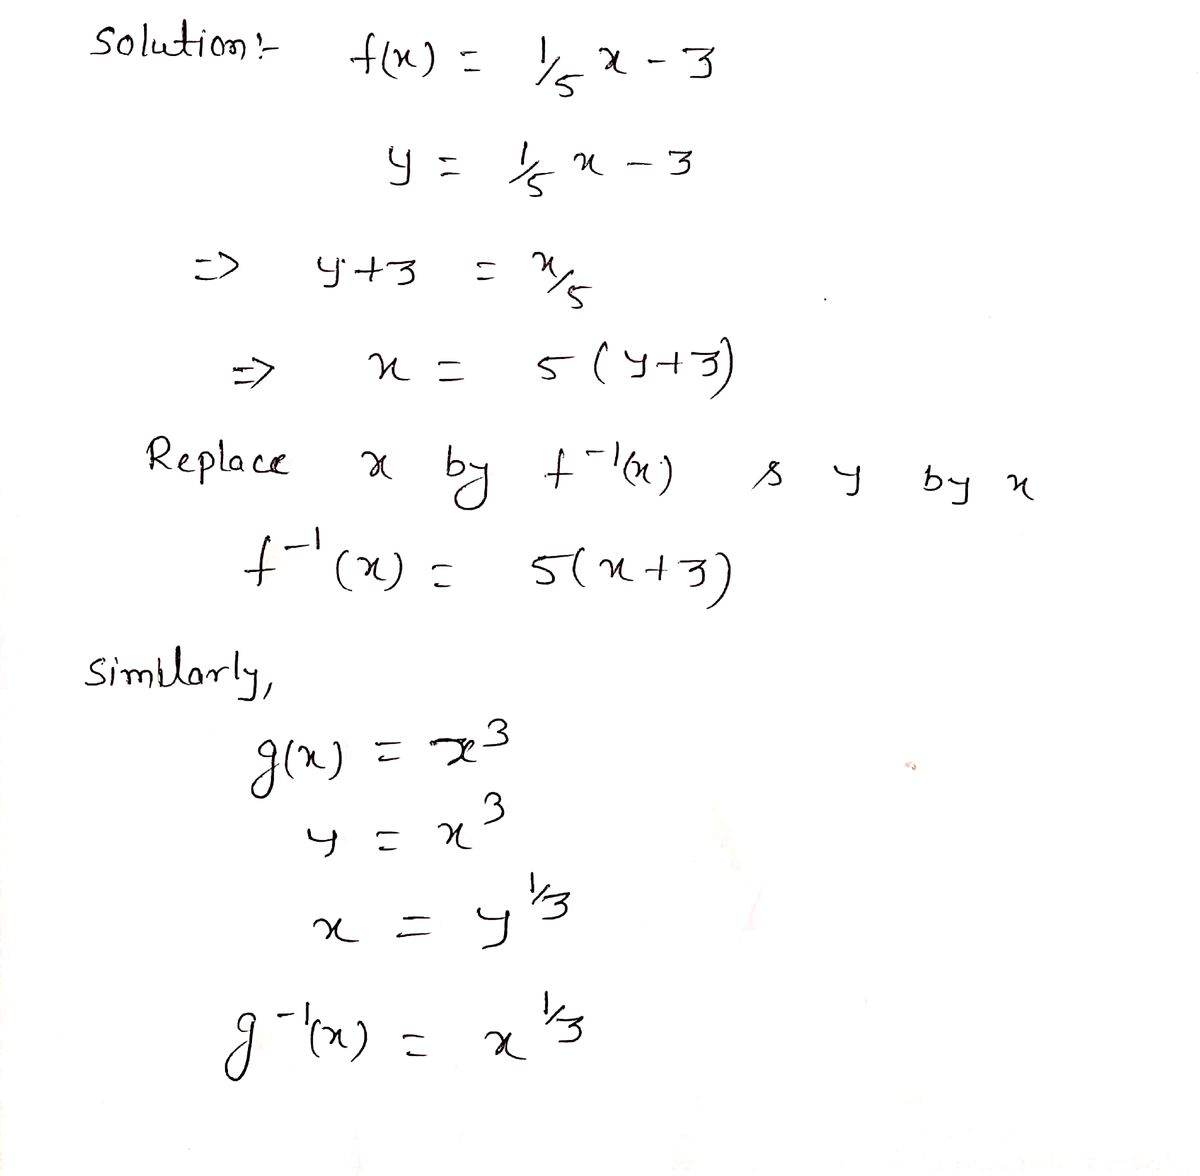 Solution:- f(x) = 1/5 x - 3
y = 1/5 x - 3
=> y+3 = x/5
=> x = 5(y+3)
Replace x by f⁻¹(x) & y by x
f⁻¹(x) = 5(x+3)
Similarly,
g(x) = x³
y = x³
x = y^1/3
g⁻¹(x) = x^1/3